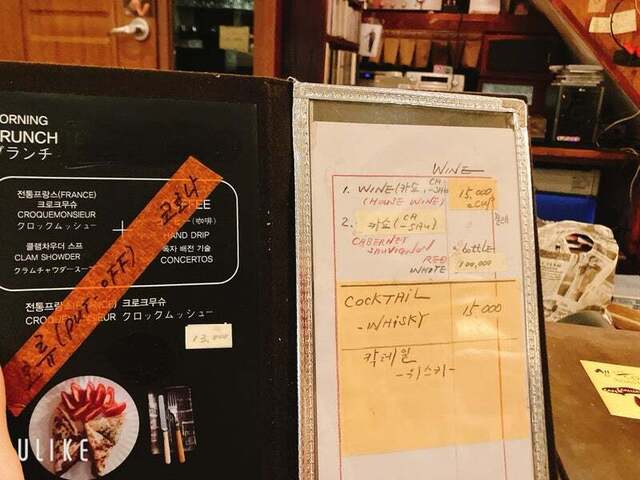 ORNING
RUNCH
ブランチ
전통프랑스(FRANCE)
크로크무슈
CROQUEMONSIEUR
クロックムッシュー
클램차우더 스프
CLAM SHOWDER
クラムチャウダース
+
FFEE
HAND DRIP
독자 배전 기술
CONCERTOS
보류(PUT OFF) 코로나
전통프랑스
크로크무슈
クロックムッシュー
13,000
ULIKE
WINE
1. WINE(카쇼, CA-SHAU)
(HOUSE WINE)
15,000
CUP
2. 카쇼(CA-SHAU)
CABERNET
SAUVIGNON
RED
WHITE
bottle
100,000
COCKTAIL
-WHISKY
15000
칵테일
-위스키-